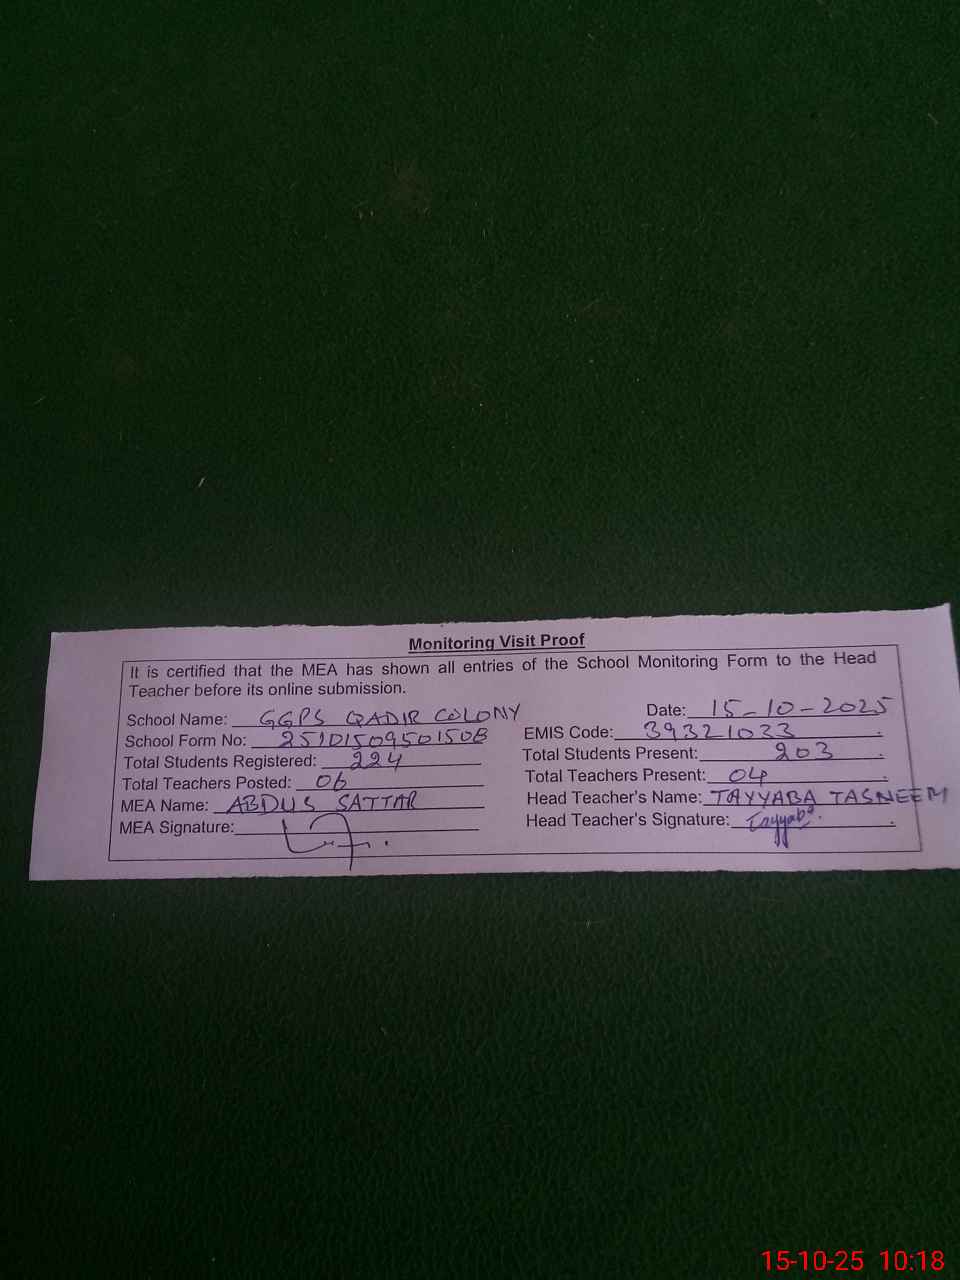 Monitoring Visit Proof
It is certified that the MEA has shown all entries of the School Monitoring Form to the Head
Teacher before its online submission.
School Name: GGPS QADIR COLONY Date: 15-10-2025
School Form No: 25101509501508 EMIS Code: 39321033
Total Students Registered: 224 Total Students Present: 203
Total Teachers Posted: 06 Total Teachers Present: 04
MEA Name: ABDUS SATTAR Head Teacher's Name: TAYYABA TASNEEM
MEA Signature: Head Teacher's Signature: Tayyaba.
15-10-25 10:18